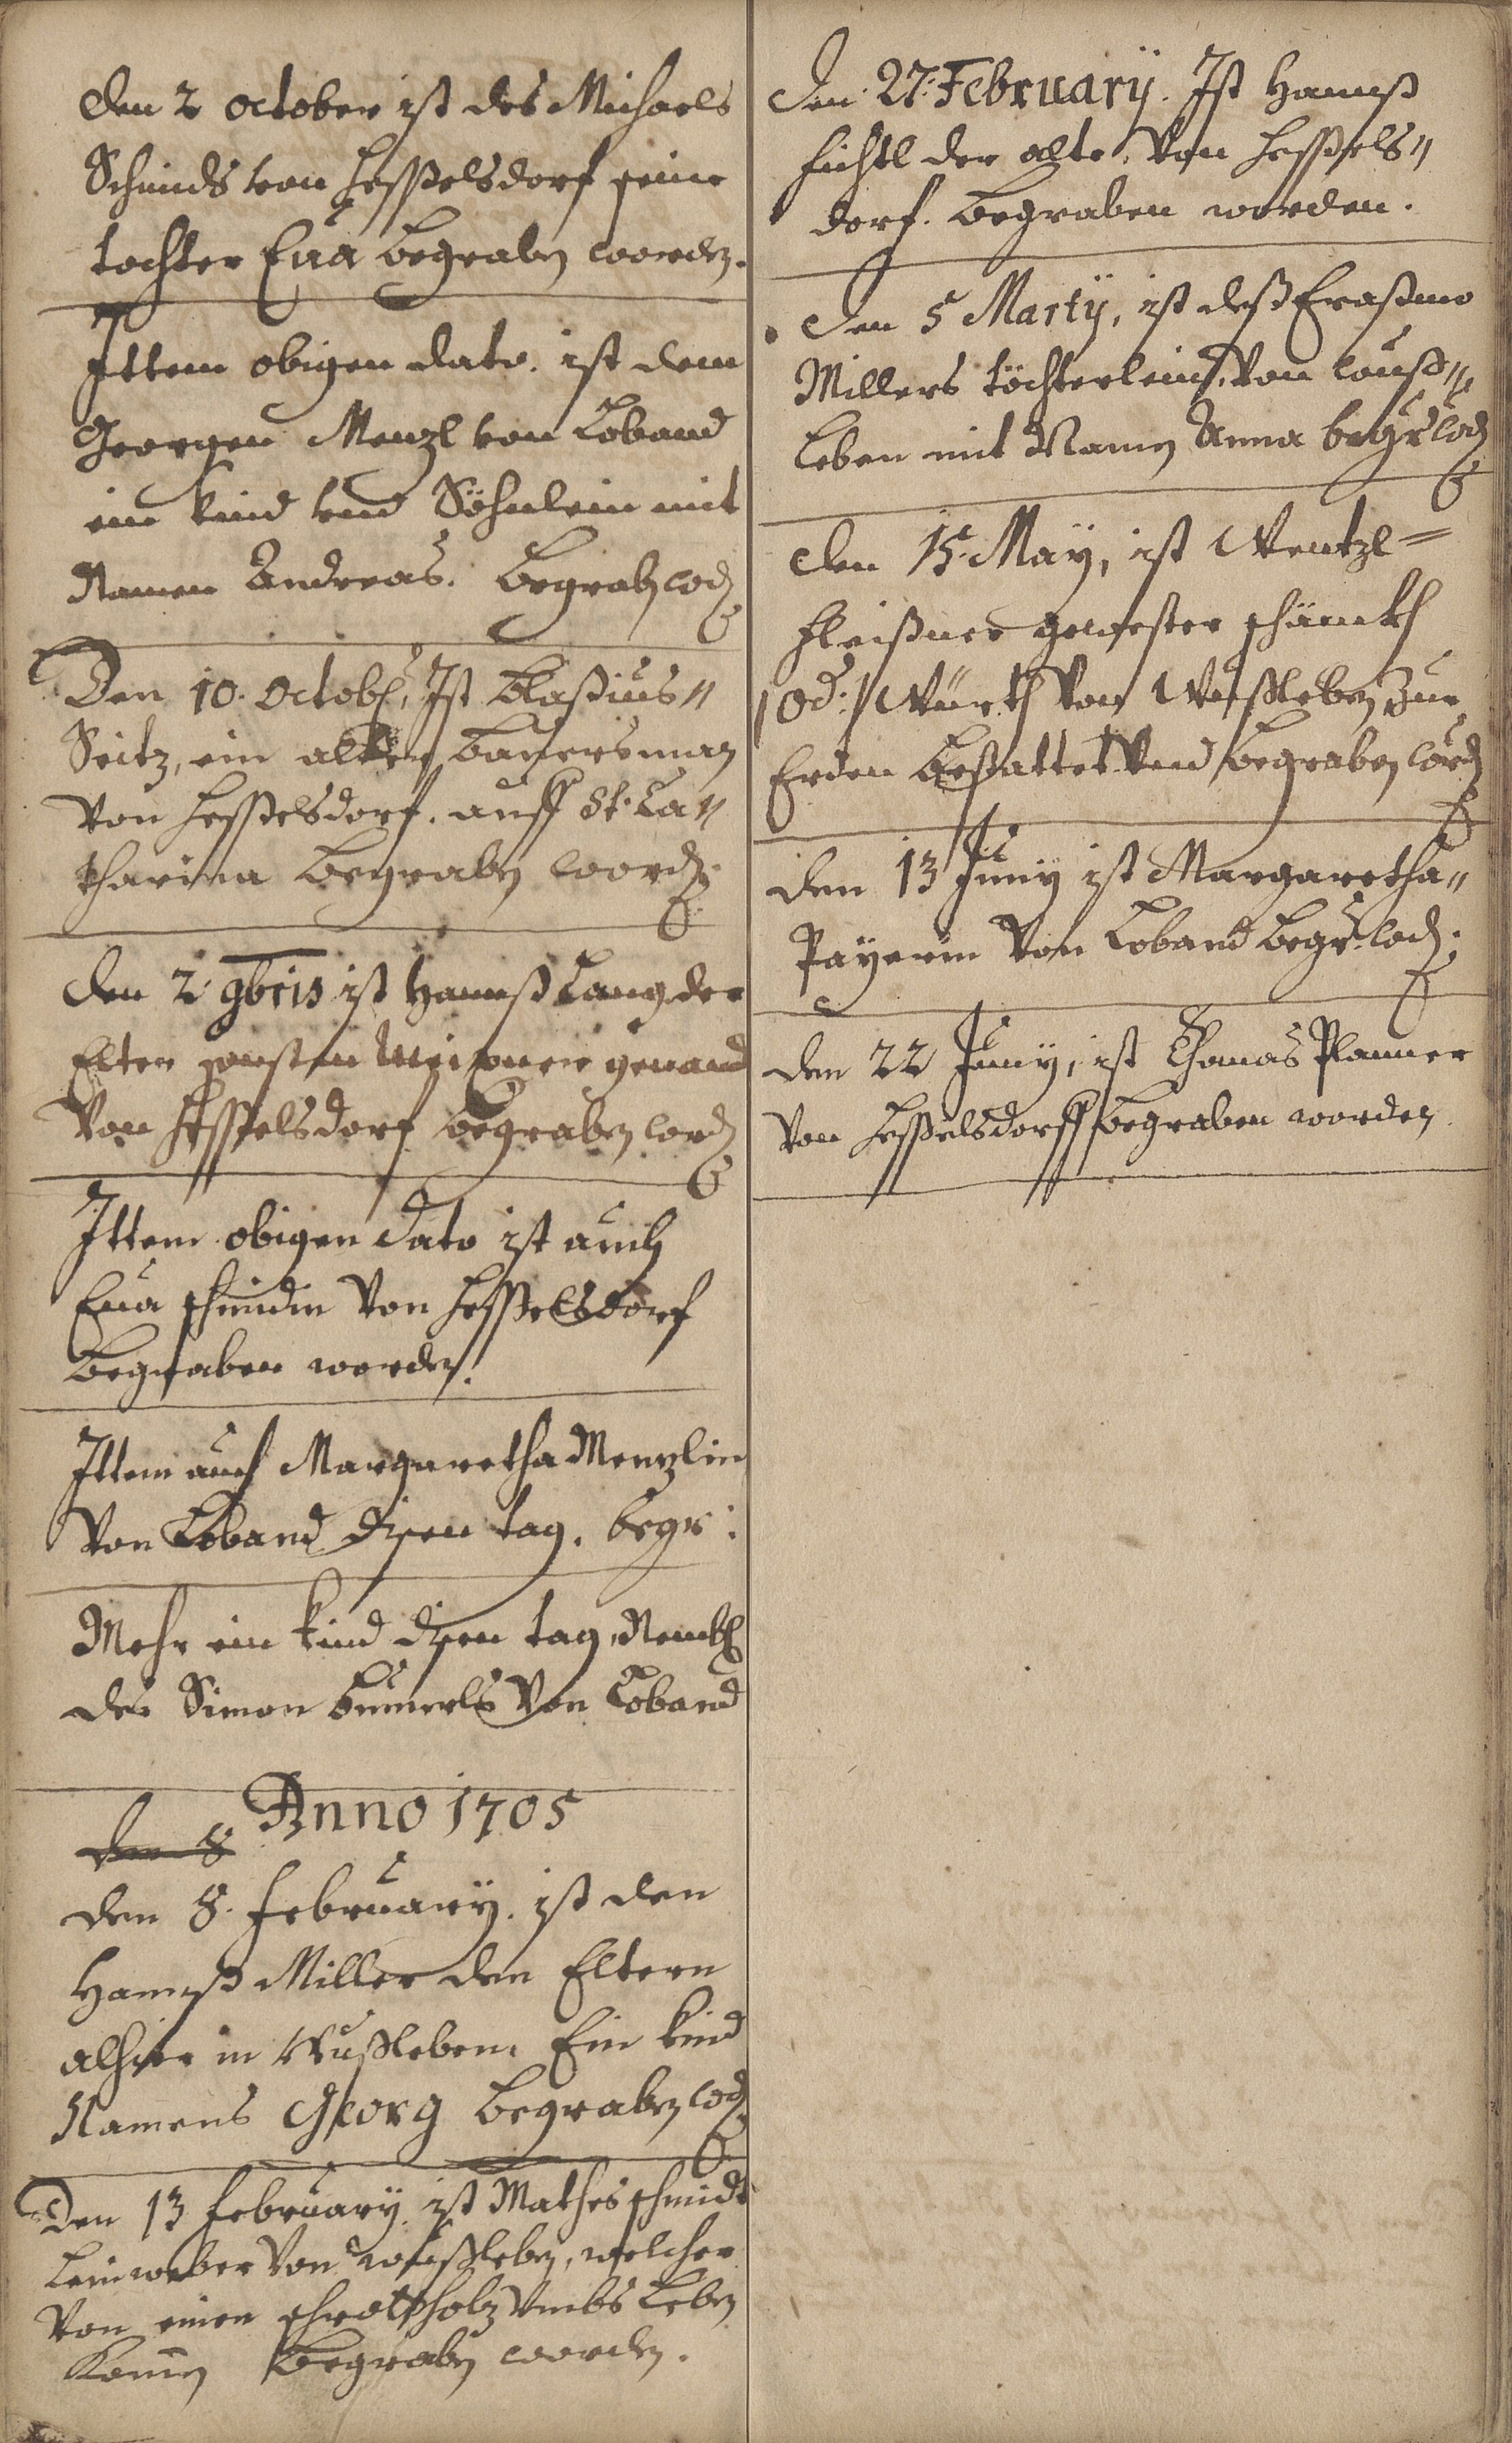 den 2 october ist des Michaels
Schmids von Hesselsdorf seine
tochter Eua begraben worden.
Ittem obigen dato. ist dem
Georgen Menzl von Loband
ein kind und Söhnlein mit
Namen Andreas. begraben wod
Den 10. Octob, Ist Blasius
Seitz, ein alter baursman
Von Hesselsdorf. auff St. Ca
tharina begraben word.
den 2 9bris ist Hannß Lang der
Elter sonsten genand
Von Hesselsdorf begraben word
Ittem obigen dato ist auch
Eua schmidin Von Hesselsdorf
begraben worden.
Ittem auch Margaretha Menzlin
Von Loband disen tag. begr:
Mehr ein kind disen tag, Nembl
des Simon Von Loband
Anno 1705
den 8
den 8. February. ist den
Hannß Miller den Eltern
alhier in Wußleben Ein kind
Namens Georg begraben wod
Den 13 February. ist Mathes schmidt
Leinweber Von Wußleben, welcher
Von einen schrottholz Vmbs Leben
Komen begraben worden.
Den 27. February. Ist Hannß
Fichtl der alte, Von Hessels
dorf. begraben worden.
Den 5 Marty, ist deß Erasmo
Millers töchterlein, Von Wuß
leben mit Namen Anna begr wod
den 15. May, ist Wentzl =
Fleißner gewester schänckh
/od:/ Würth Von Wußleben zur
Erden bestattet Vnd begraben word
den 13 Juny ist Margaretha
Payerin Von Loband begr. wod.
den 22 Juny, ist Thomas Planner
Von Hesselsdorff begraben worden